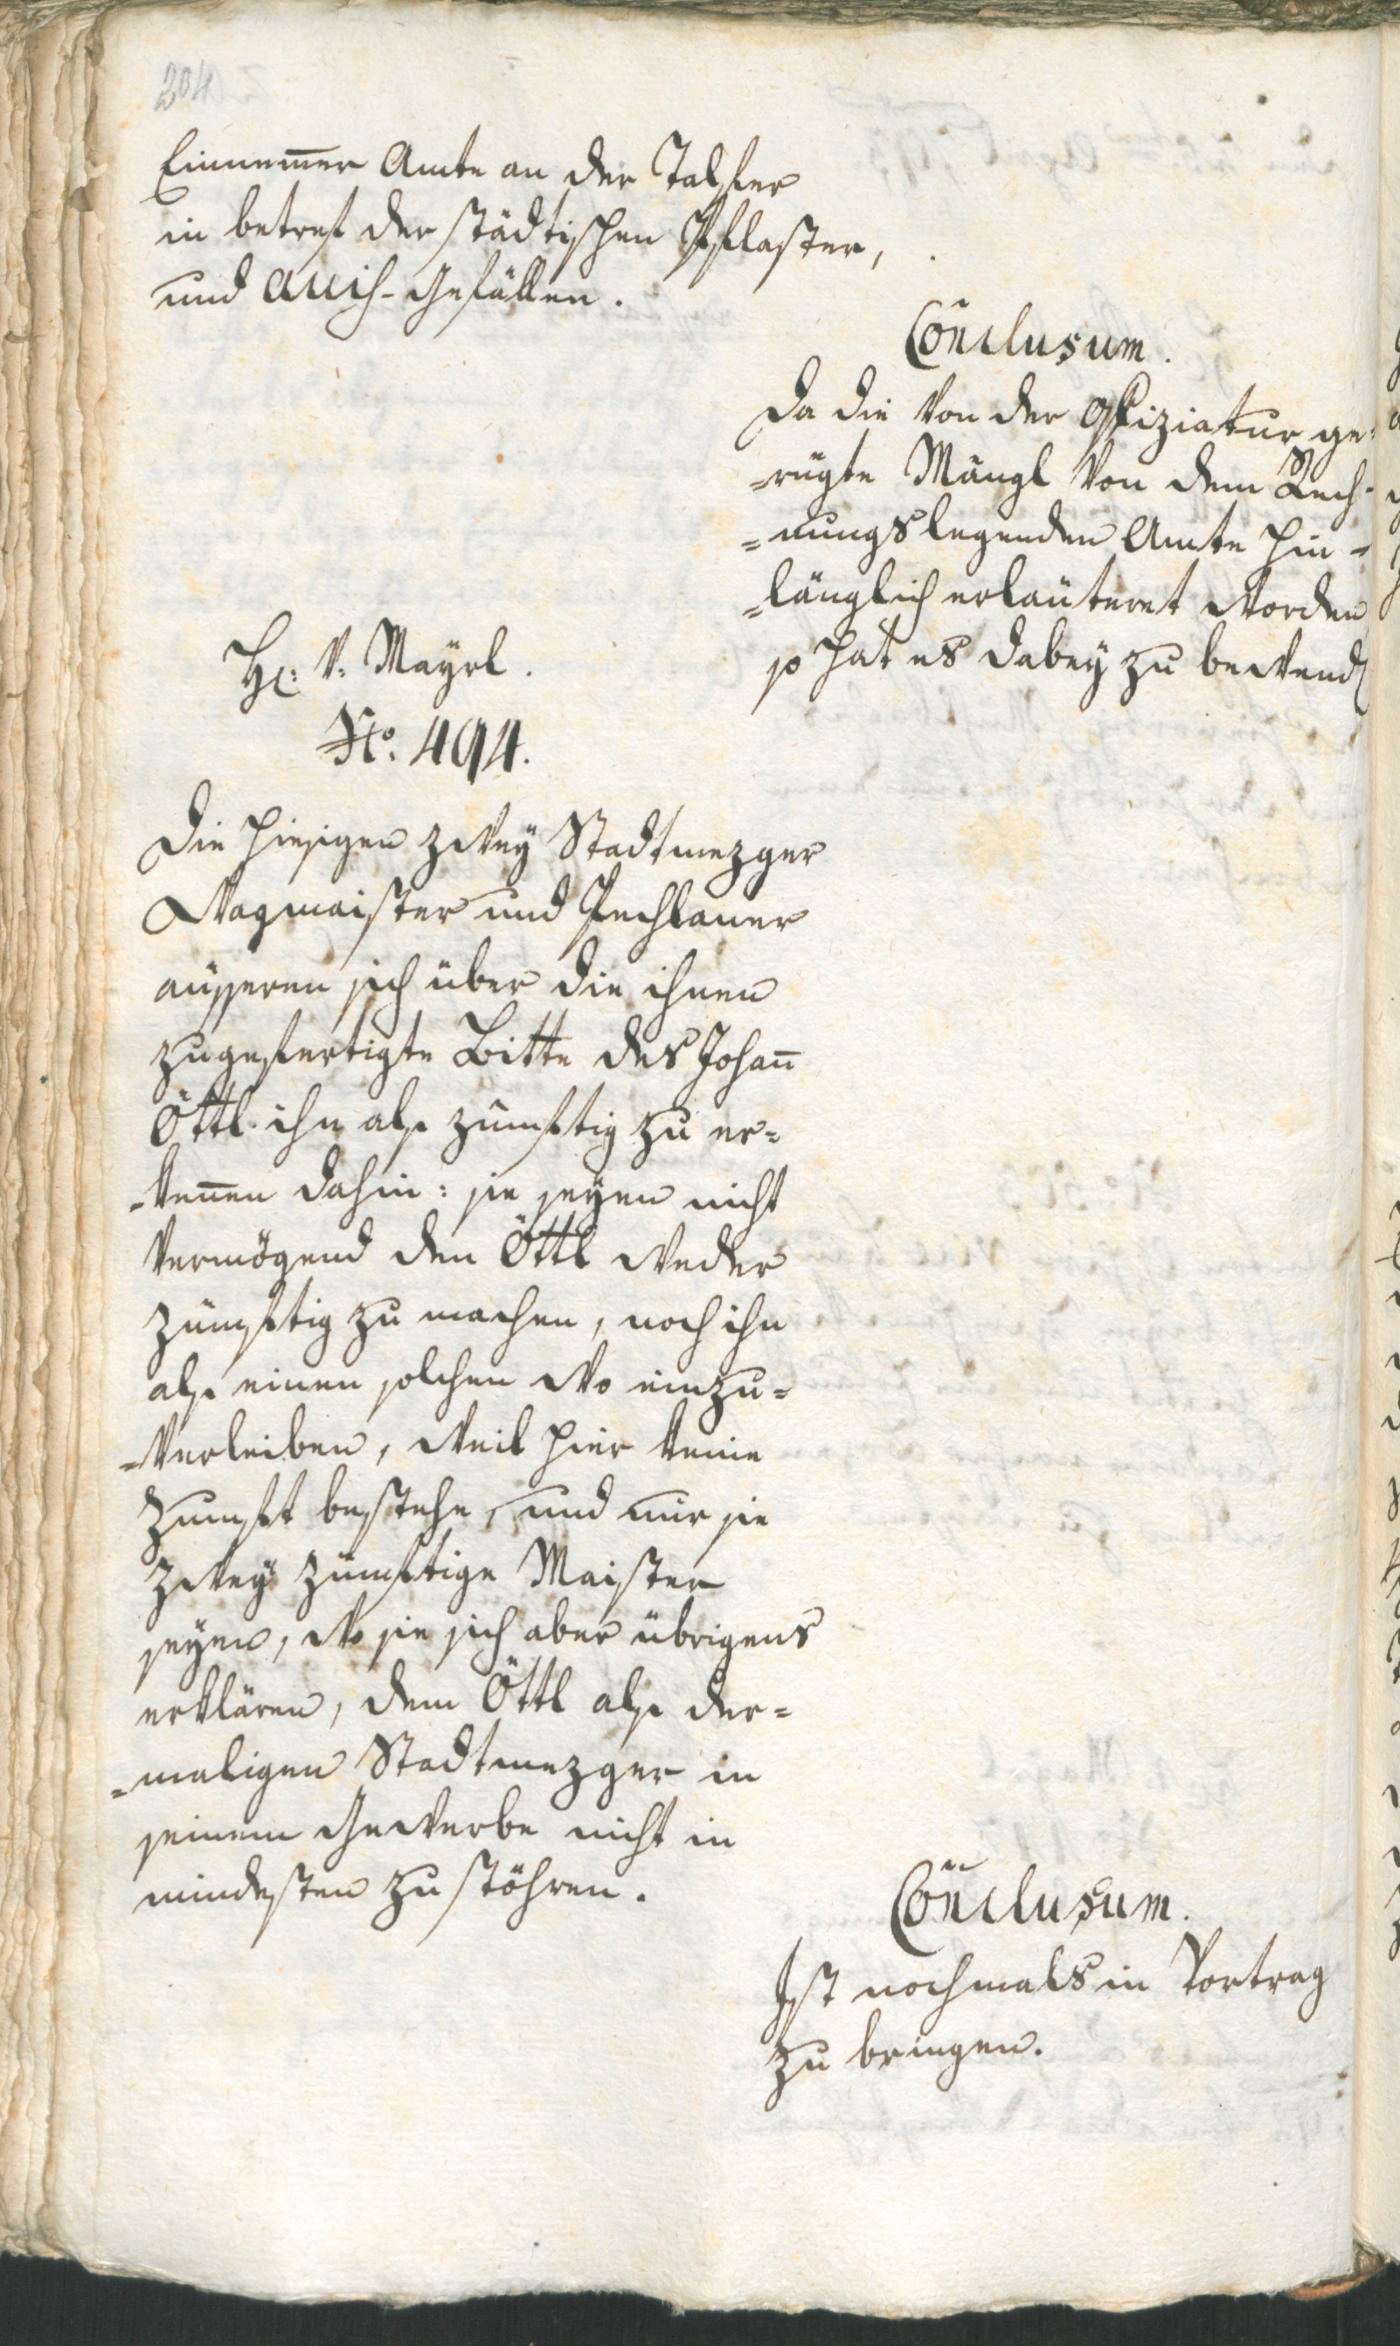 204
Einnem̅er Amte an der Talfer
in betref der städtischen Pflaster,
und Auif-Gefällen.
Conclusum.
Da die von der Offiziatur ge-
=rügte Mängl von dem Rech-
=nungslegenden Amte hin=
=länglich erläuteret worden
so hat es dabey zu bewend
H: v: Mayrl.
No. 494.
Die hiesigen zwey Stadtmezger
Wagmaister und Pechlaner
äusseren sich über die ihnen
zugefertigte Bitte des Johan̅
Öttl ihn als zünftig zu er=
=ken̅en dahin: sie seyen nicht
vermögend den Öttl weder
zünftig zu machen, noch ihn
als einen solchen wo einzu=
=verleiben, weil hier keine
Zunft bestehe, und nur sie
zwey zünftige Maister
seyen, wo sie sich aber übrigens
erklären, dem Öttl als der=
=maligen Stadtmezger in
seinem Gewerbe nicht in
mindesten zu stöhren.
Conclusum.
Ist nochmals in Vortrag
zu bringen.